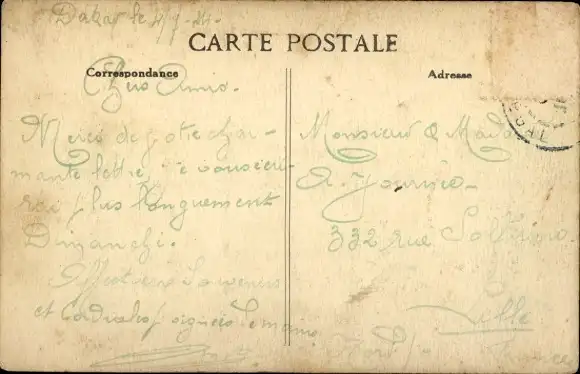 Dakar le 4/7-24-
CARTE POSTALE
Correspondance
Adresse
Chers Amis.
Merci de votre char-
mante lettre, je vous écri-
rai plus longuement
Dimanche.
Affectueux Souvenirs
et Cordiales poignées de mains
Monsieur & Mada
A. Journée
332 rue Solférino
Lille
Nord France